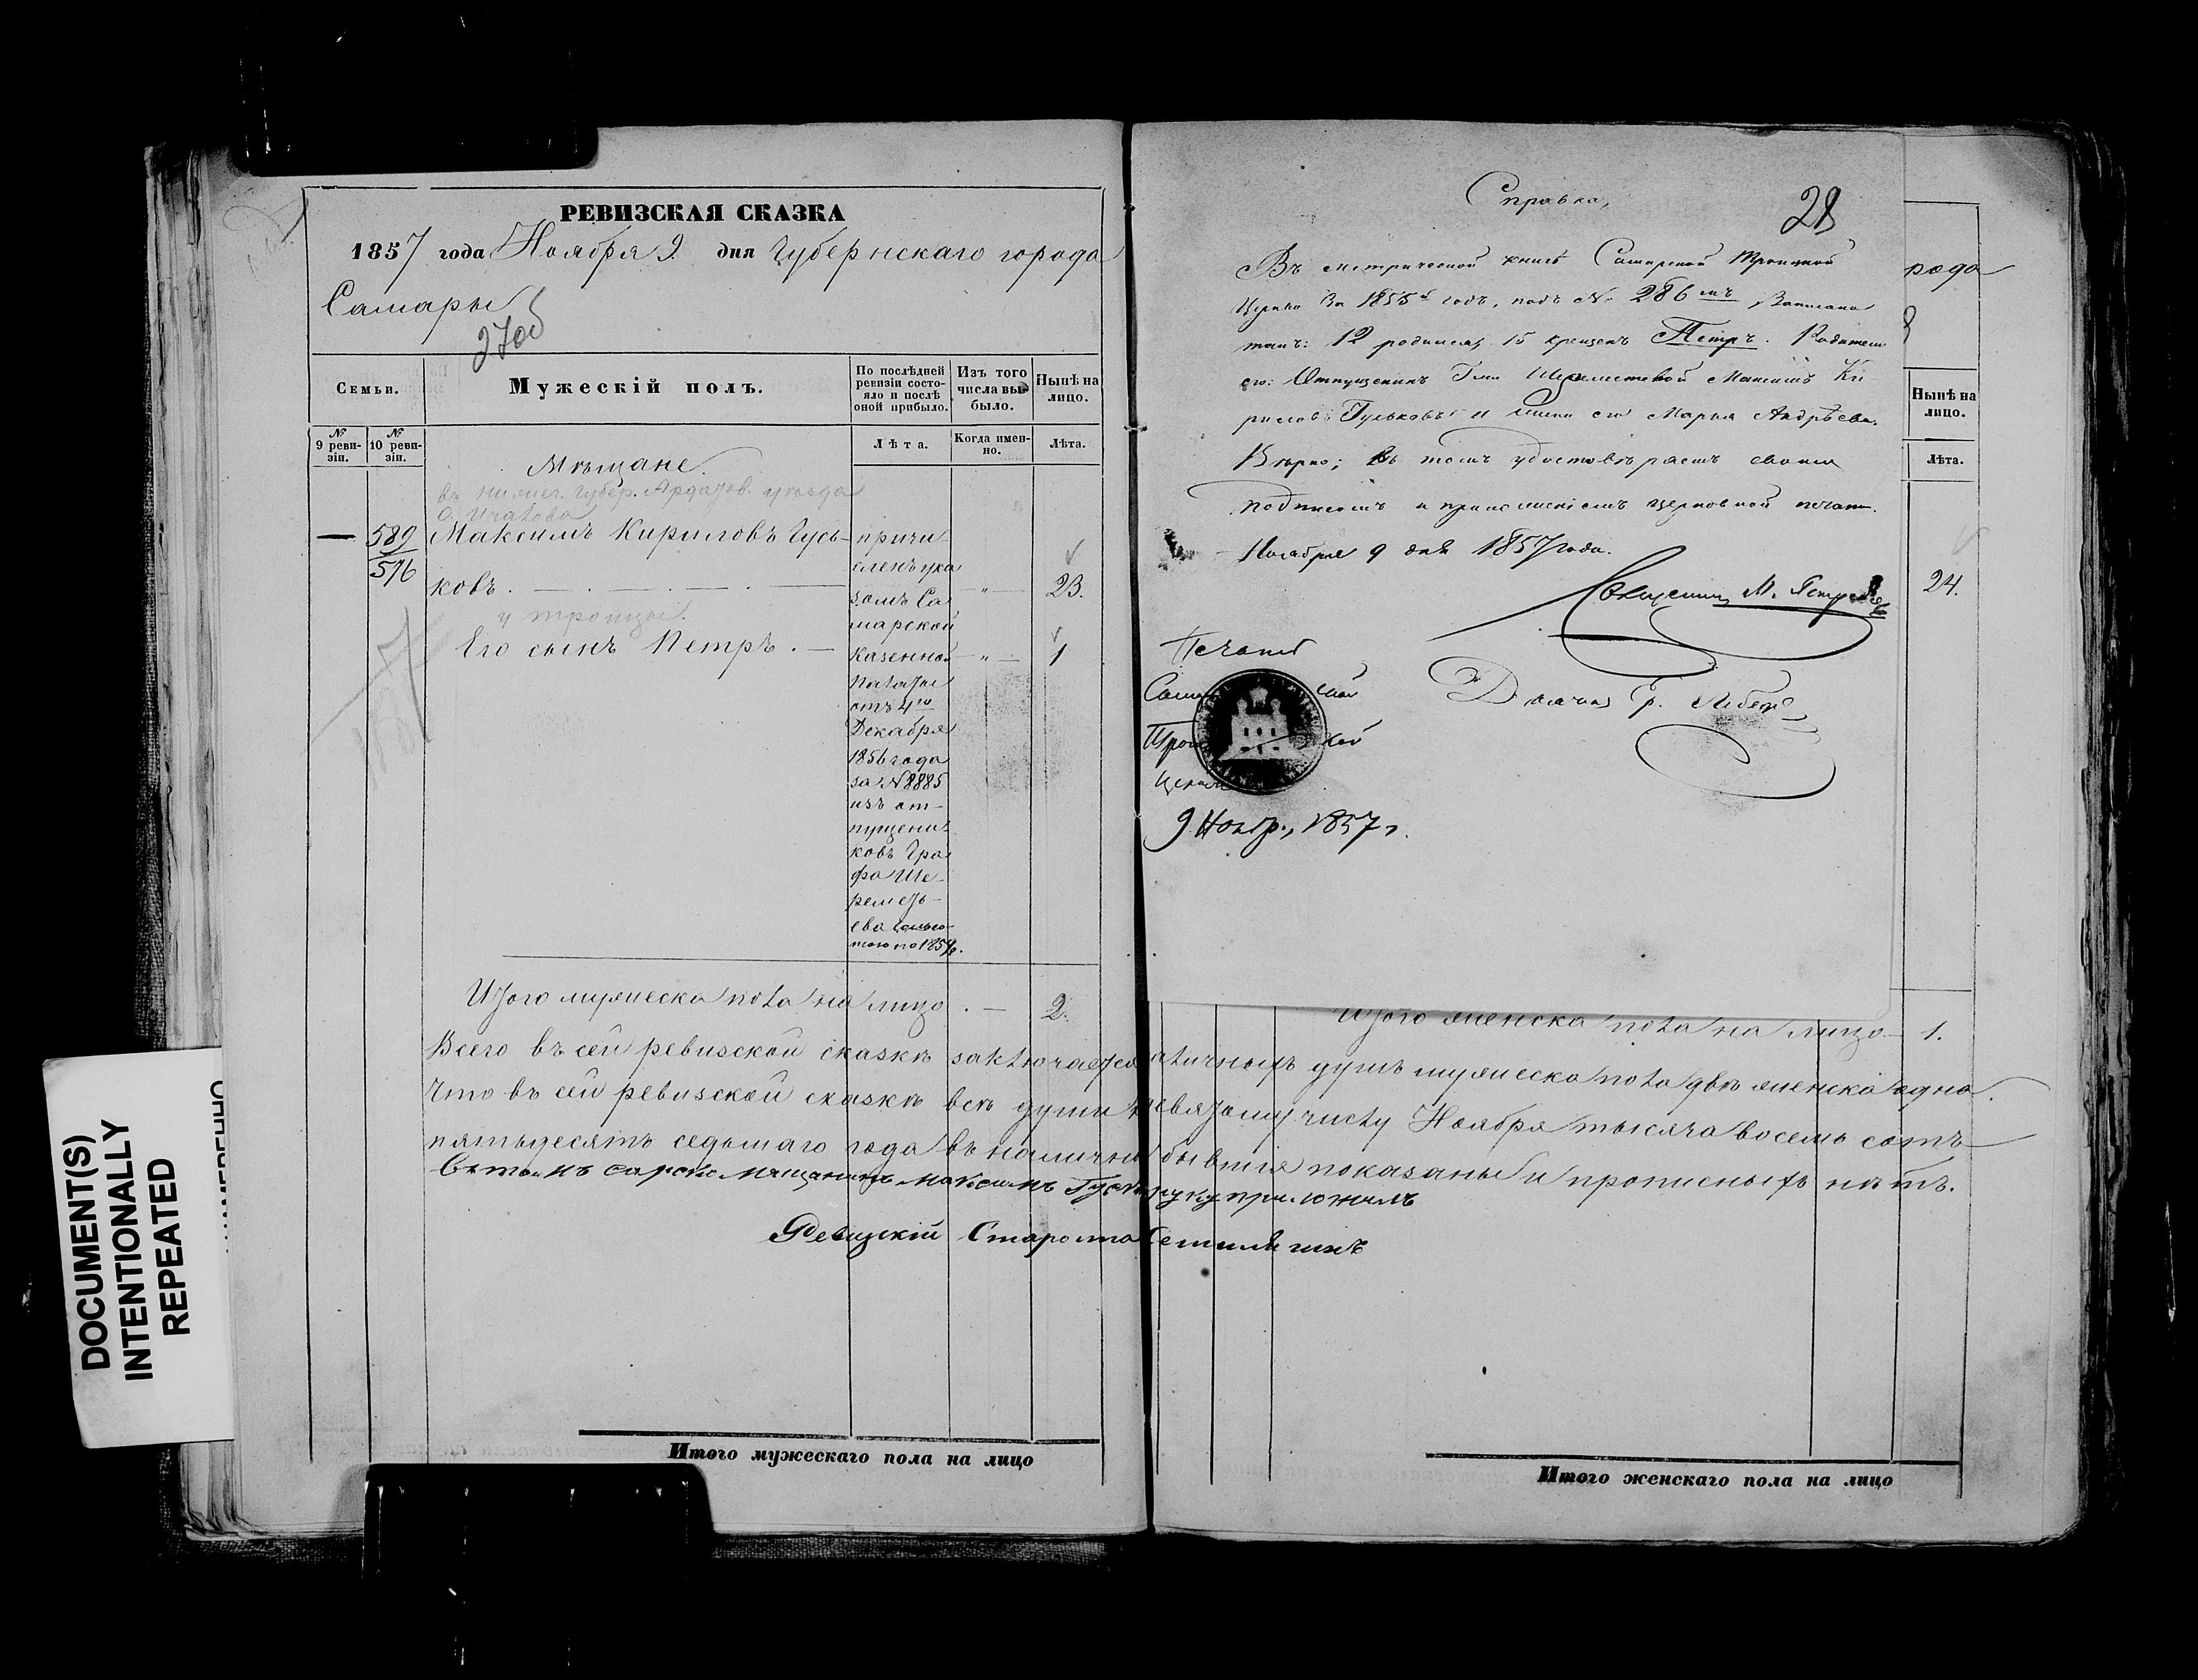 РЕВИЗСКАЯ СКАЗКА
1857 года Ноября 9. дня Губернскаго города
Самары
27об
Семьи.
Мужескій полъ.
По послѣдней ревизіи состояло и послѣ оной прибыло.
Изъ того числа выбыло.
Нынѣ на лицо.
№ 9 ревизіи.
№ 10 ревизіи.
Лѣта.
Когда именно.
Лѣта.
Мѣщане.
въ нижег. губер. Ардатов. уѣзда
с.
— 589 Максимъ Кириловъ Гусь-
576
ковъ. — 23.
у троицы.
Его сынъ Петръ. — 1
причи
сленъ ука
зомъ Са
марской
казенной
палаты
отъ 4го
Декабря
1856 года
за №8885
изъ от-
пущени
ковъ Гра
фа Ше-
реметь-
ева
Итого мужеска пола на лицо . — 2.
Всего въ сей ревизской сказкѣ заключается
Что въ сей ревизской сказкѣ всѣ души
пятьдесятъ седьмаго года въ наличн
Въ томъ мѣщанинъ Максимъ Гуськ
Ревизскій Староста
Итого мужескаго пола на лицо
Справка,
28
Въ метрической книгѣ Самарской Троицкой
Церкви За 1855й годъ, подъ №. 286мъ, Записано
такъ: 12 родился, 15 крещенъ Петръ. Родители
его: Отпущеникъ Гжи Шереметевой Максимъ Ки
риловъ Гуськовъ и жена его Марья Андрѣева.
Вѣрно; въ томъ удостовѣряемъ своимъ
подписомъ и приложеніемъ церковной печати.
Ноября 9 дня 1857 года.
Священникъ М.
Печать
Дьячокъ
9 Нояб., 1857 г.
рода
Нынѣ на лицо.
Лѣта.
24.
Итого женска пола на лицо — 1.
аличныхъ душъ мужеска пола двѣ женска одна.
девятому числу Ноября тысяча восемь сотъ
бывшія показаны и прописныхъ нѣтъ.
руку приложилъ
Итого женскаго пола на лицо
DOCUMENT(S)
INTENTIONALLY
REPEATED